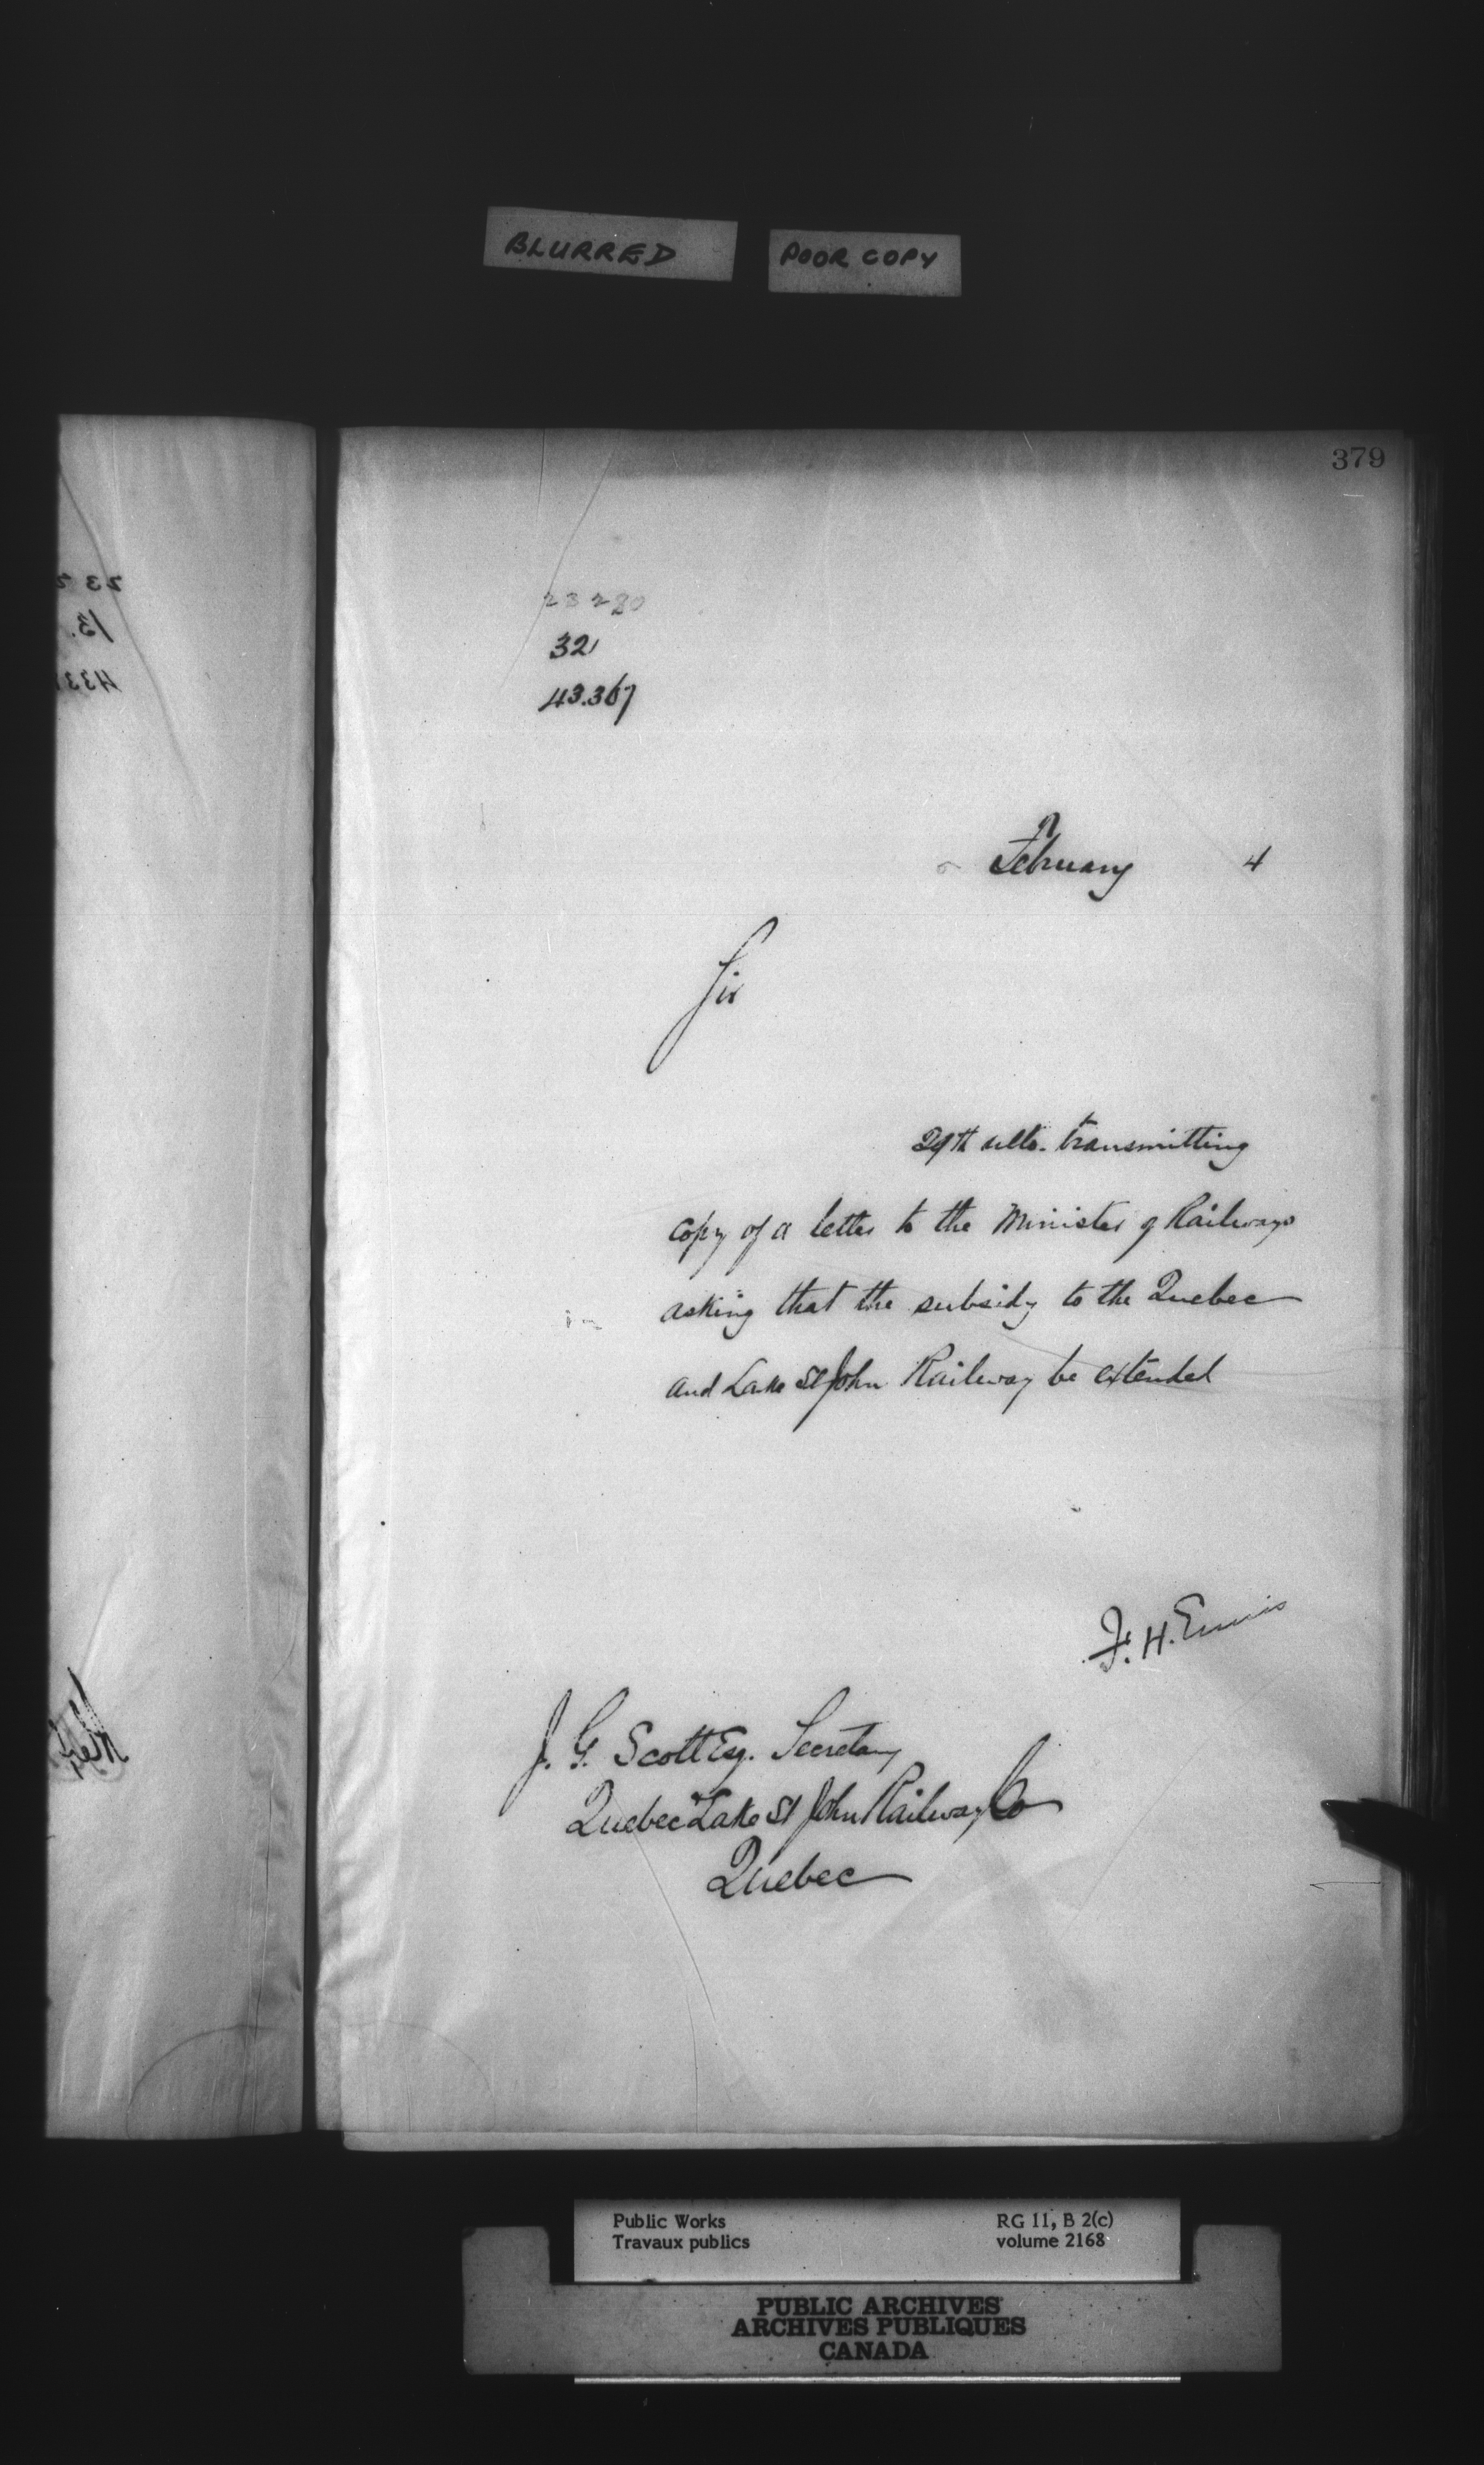 BLURRED
POOR COPY
379
23280
32
43.367
February 4
Sir
29th ulto. transmitting
copy of a letter to the Minister of Railways
asking that the subsidy to the Quebec
and Lake St John Railway be extended
F. H. Ennis
J. G. Scott Esq. Secretary
Quebec & Lake St John Railway Co
Quebec
Public Works
Travaux publics
RG 11, B 2(c)
volume 2168
PUBLIC ARCHIVES
ARCHIVES PUBLIQUES
CANADA